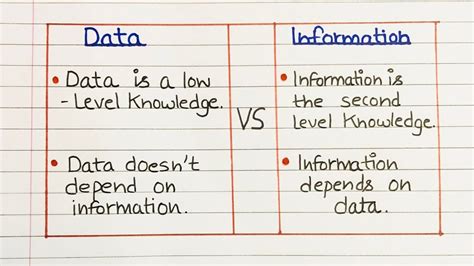 Data
• Data is a low
- Level Knowledge.
• Data doesn't
depend on
information.
VS
Information
• Information is
the second
Level Knowledge.
• Information
depends on
data.